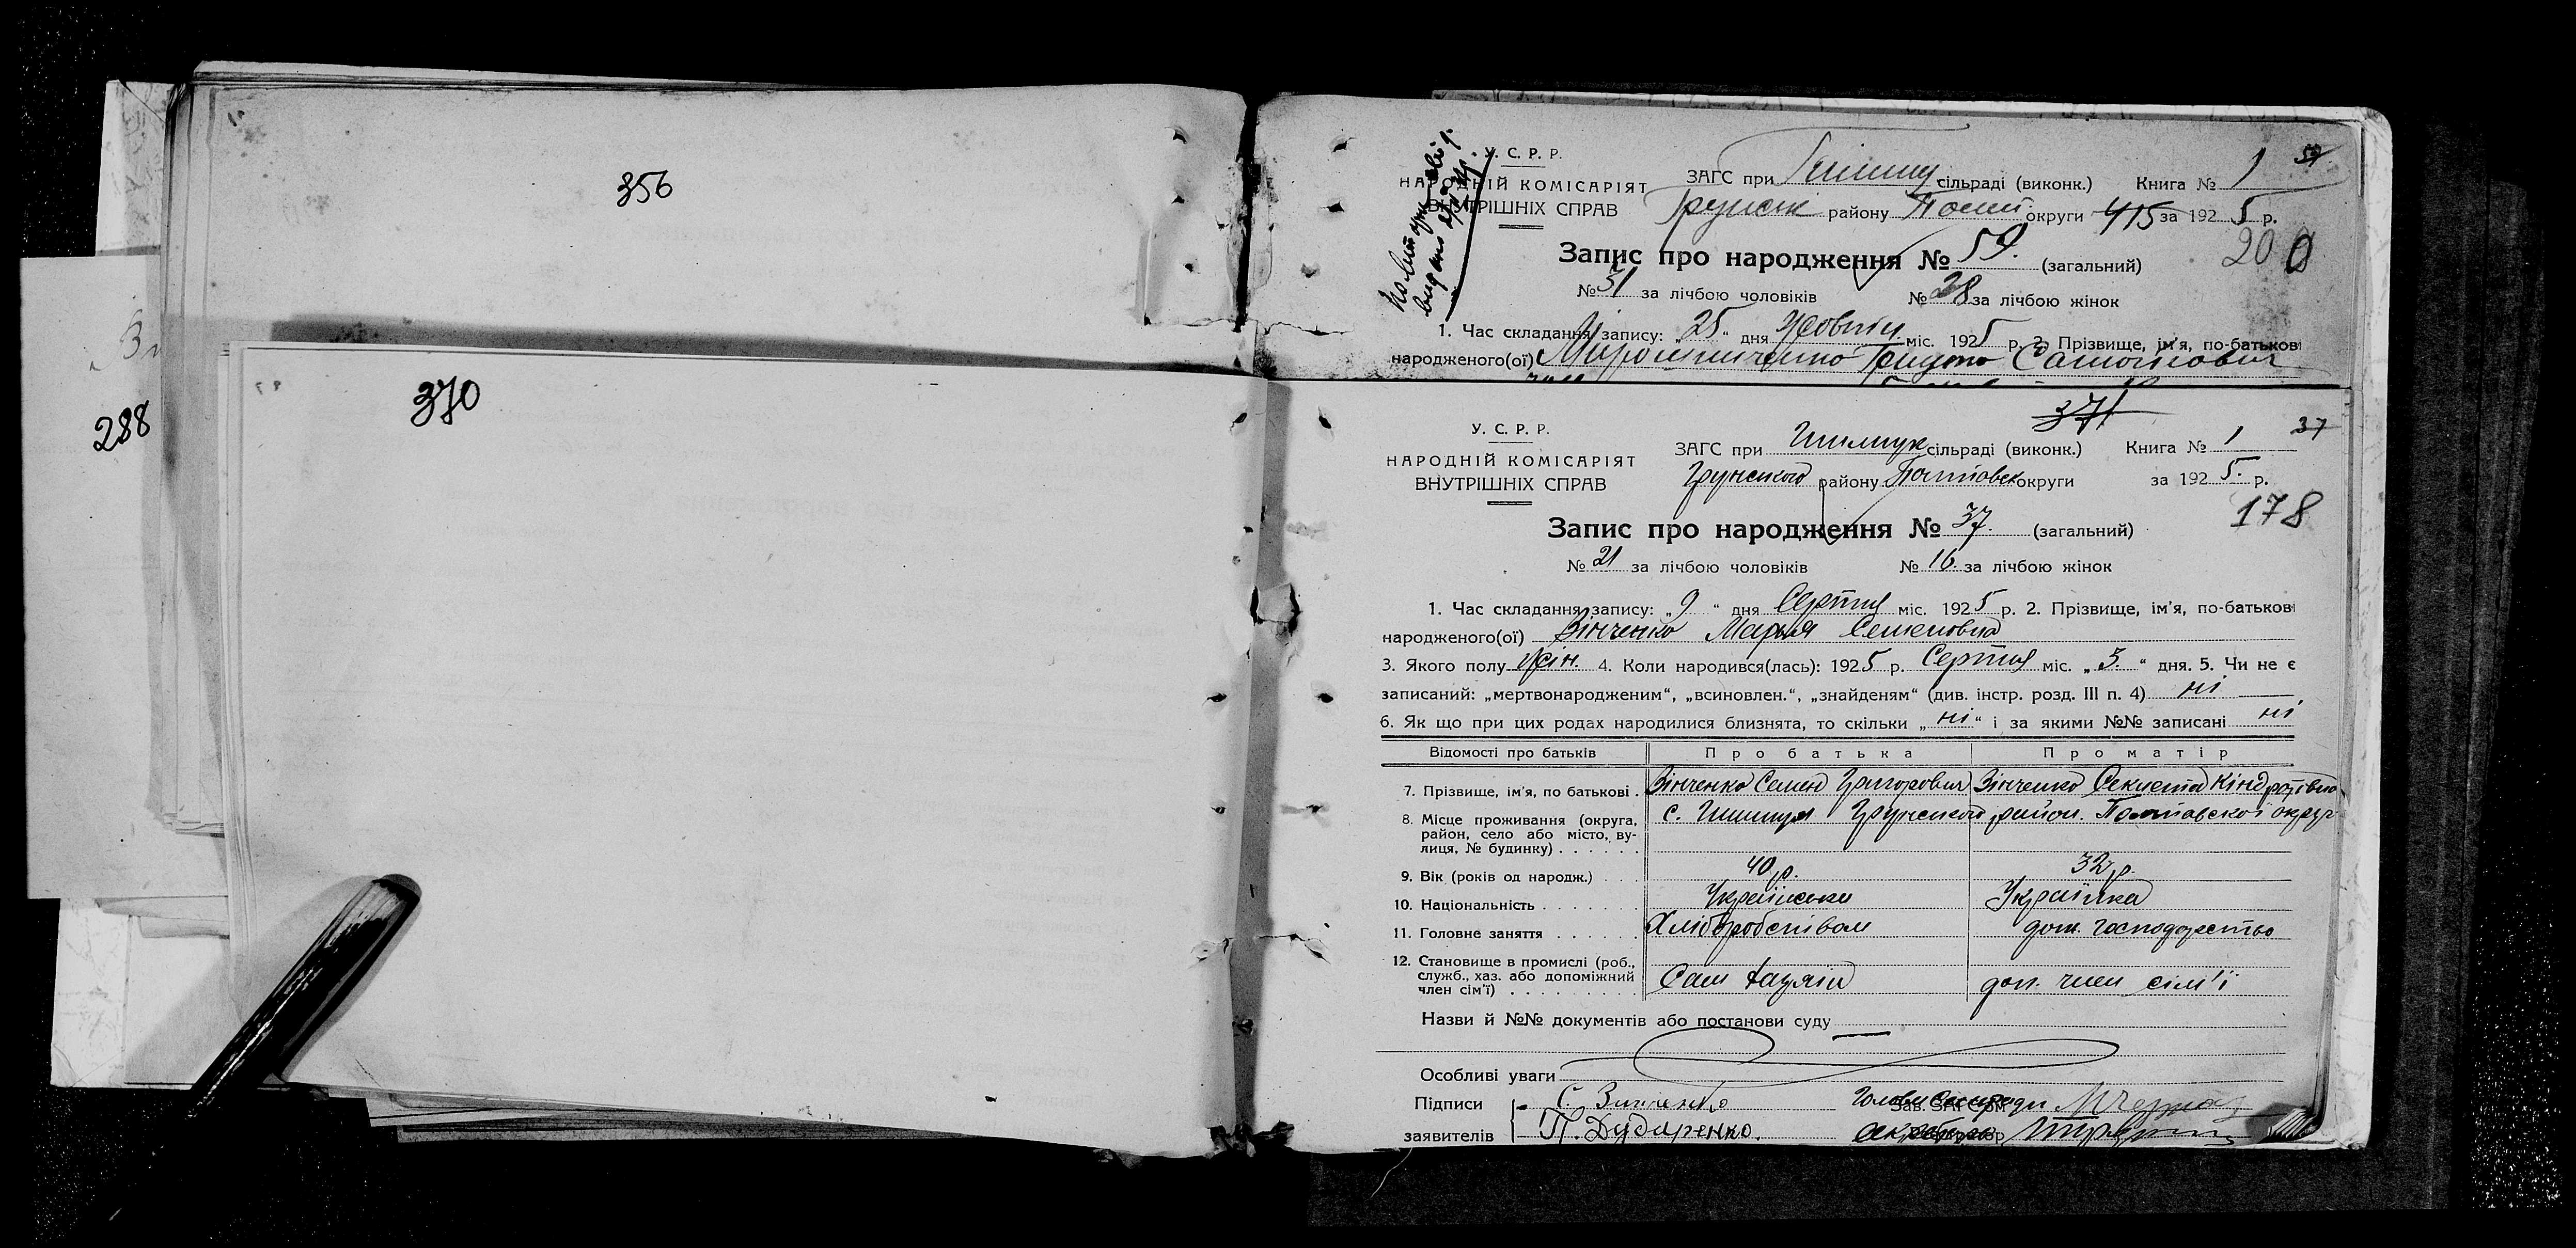 356
370
288
У. С. Р. Р.
НАРОДНІЙ КОМІСАРІЯТ
ВНУТРІШНІХ СПРАВ
ЗАГС при сільраді (виконк.) Книга № 1 59
Грунськ району Полт округи 415 за 1925 р.
Запис про народження № 59. (загальний) 200
№ 31 за лічбою чоловіків № 28 за лічбою жінок
1. Час складання запису: „25“ дня Жовтн міс. 1925 р. 2. Прізвище, ім'я, по-батькові
народженого(ої) Мирошниченко
371
У. С. Р. Р.
НАРОДНІЙ КОМІСАРІЯТ
ВНУТРІШНІХ СПРАВ
ЗАГС при сільраді (виконк.) Книга № 1 37
Грунського району Полтавськ округи за 1925. р.
Запис про народження № 37. (загальний) 178
№ 21 за лічбою чоловіків № 16. за лічбою жінок
1. Час складання запису: „9“ дня Серпня міс. 1925 р. 2. Прізвище, ім'я, по-батькові
народженого(ої) Зінченко Марья Семеновна
3. Якого полу жін. 4. Коли народився(лась): 1925 р. Серпня міс. „3.“ дня. 5. Чи не є
записаний: „мертвонародженим“, „всиновлен.“, „знайденям“ (див. інстр. розд. III п. 4) ні
6. Як що при цих родах народилися близнята, то скільки „ні“ і за якими №№ записані ні
Відомості про батьків Про батька Про матір
7. Прізвище, ім'я, по батькові . Зінченко Семен Григорович Зінченко Секлета Кіндратівна
8. Місце проживання (округа,
район, село або місто, ву-
лиця, № будинку) . . . . . . с. Грунського район. Полтавської округ
9. Вік (років од народж.) . . . 40 р. 32 р.
10. Національність . . . . . . . Українська Українка
11. Головне заняття . . . . . . Хліборобством дом. господарство
12. Становище в промислі (роб.,
служб., хаз. або допоміжний
член сім'ї) . . . . . . . . . Сам хазяїн доп. член сім'ї
Назви й №№ документів або постанови суду
Особливі уваги
Підписи
заявителів
С. Зинченко
П. Дубаренко.
Голови Сільради
Зав. ЗАГСом